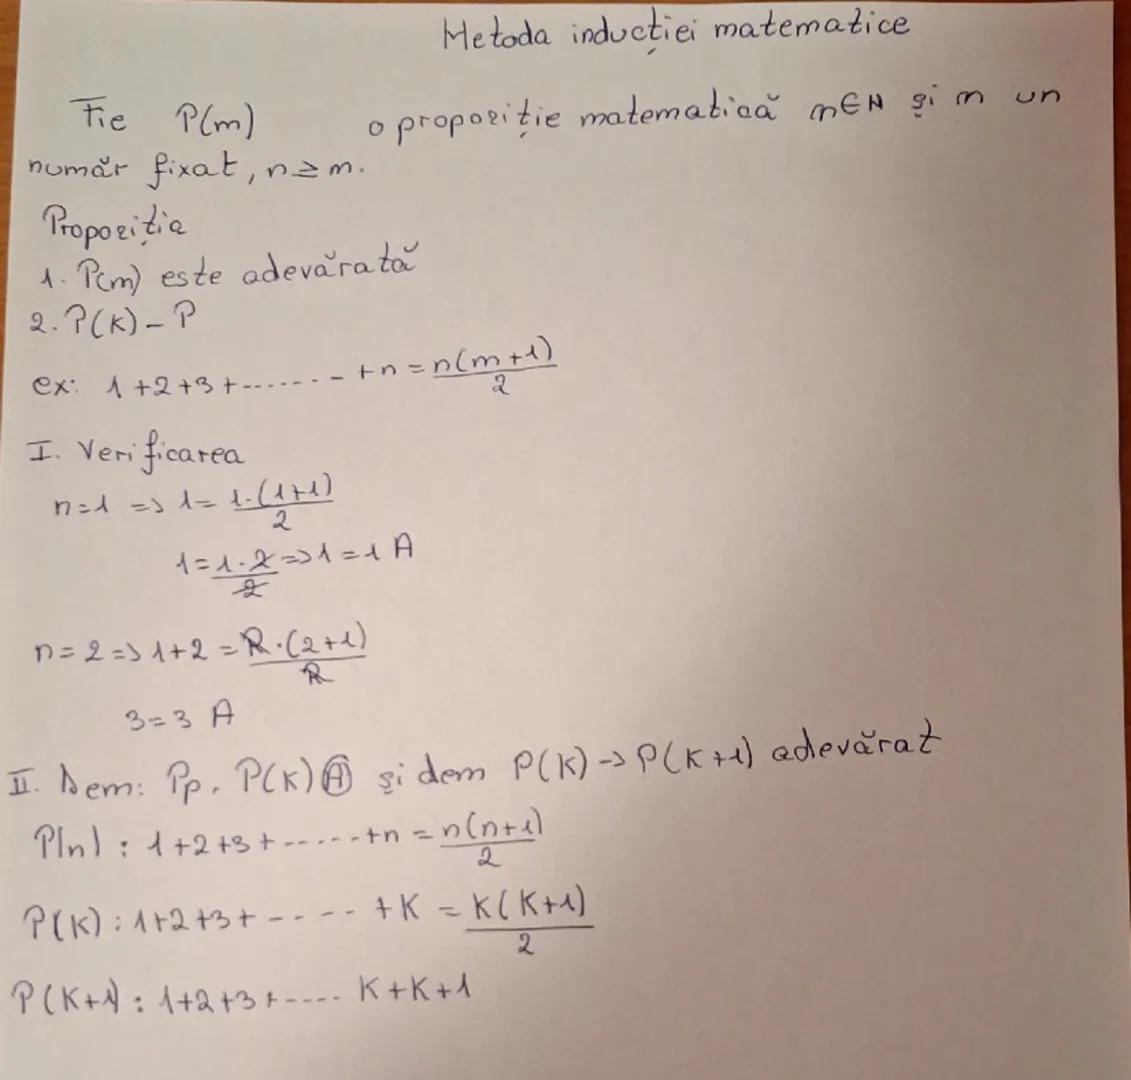 Metoda inducției matematice
Fie P(m) o propoziție matematică m∈N și m un
număr fixat, n≥m.
Propoziția
1. P(m) este adevărată
2. P(K) - P
ex: 1+2+3+.......- +n = n(m+1)/2
I. Verificarea
n=1 => 1= 1·(1+1)/2
1= 1·2/2 => 1=1 A
n=2 => 1+2 = 2·(2+1)/2
3=3 A
II. Dem: Pp. P(K) A și dem P(K) -> P(K+1) adevărat
P(n): 1+2+3+-----+n = n(n+1)/2
P(K): 1+2+3+---- +K = K(K+1)/2
P(K+1): 1+2+3+---- K+K+1